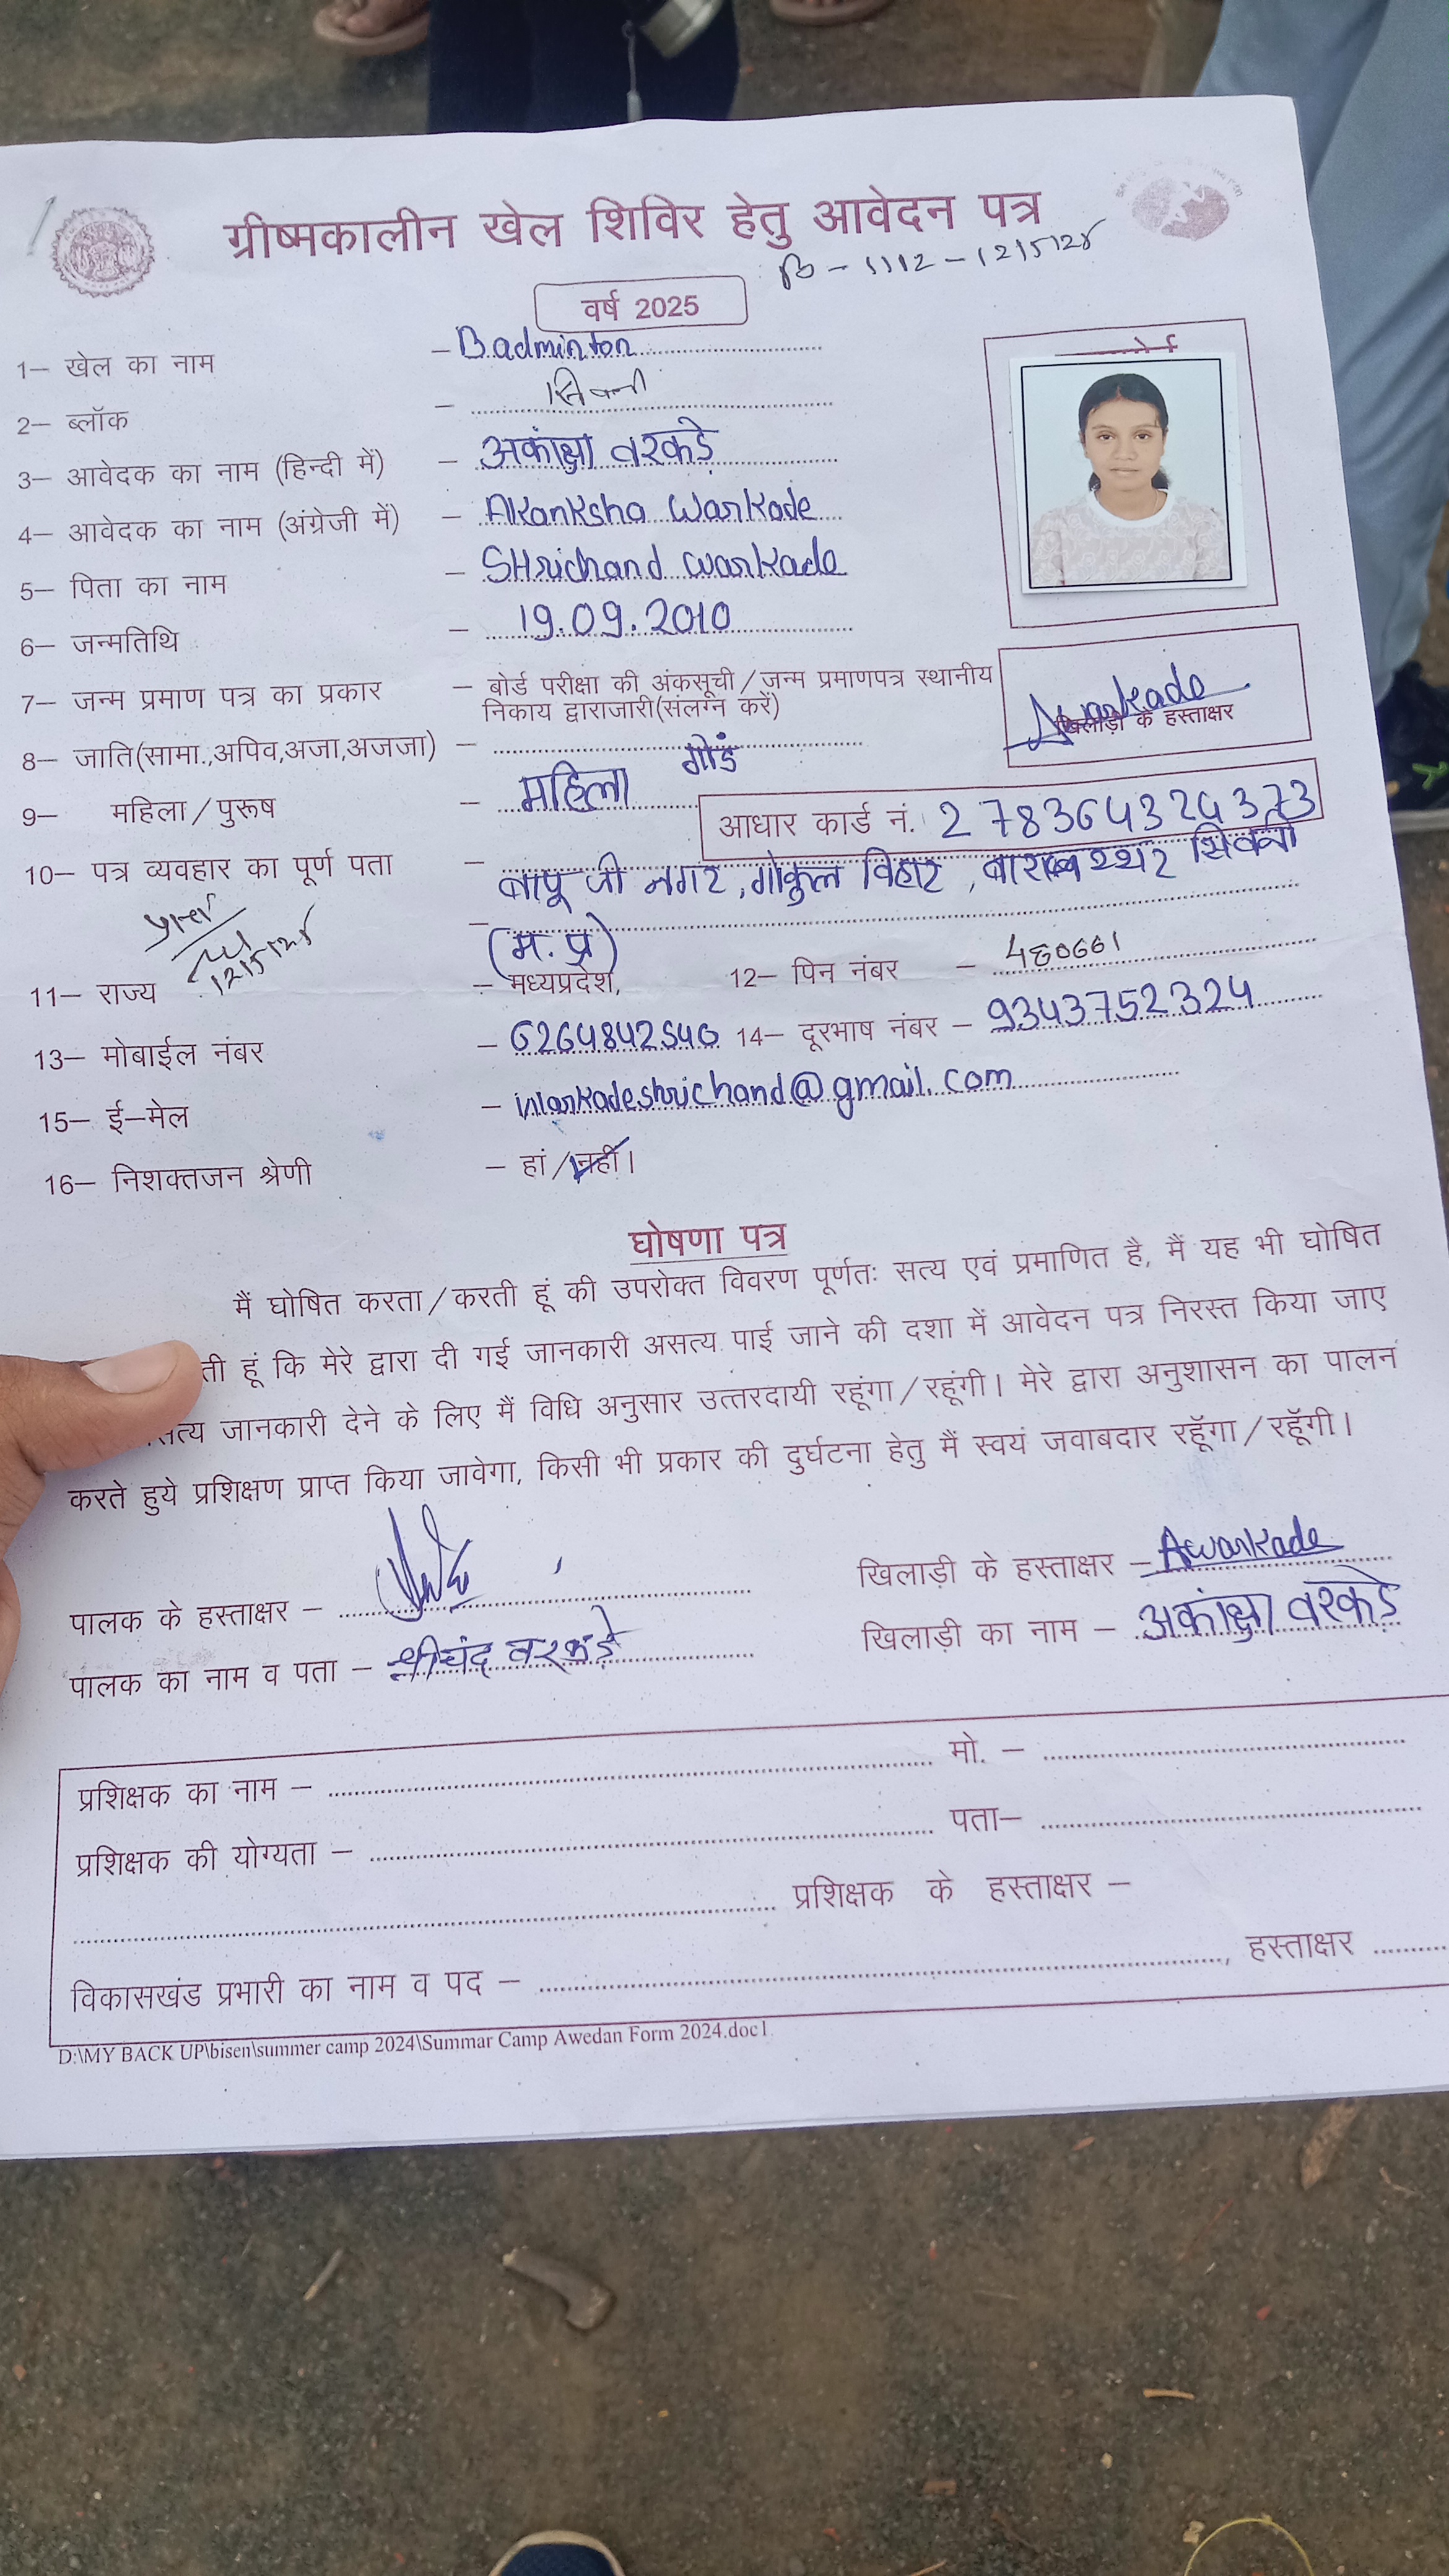 ग्रीष्मकालीन खेल शिविर हेतु आवेदन पत्र
वर्ष 2025
1– खेल का नाम – Badminton
2– ब्लॉक – सिवनी
3– आवेदक का नाम (हिन्दी में) – अकांक्षा वरकडे़
4– आवेदक का नाम (अंग्रेजी में) – Akanksha Warkade
5– पिता का नाम – SHrichand warkade
6– जन्मतिथि – 19.09.2010
7– जन्म प्रमाण पत्र का प्रकार – बोर्ड परीक्षा की अंकसूची/जन्म प्रमाणपत्र स्थानीय
निकाय द्वाराजारी(संलग्न करें)
Awarkade
खिलाड़ी के हस्ताक्षर
8– जाति(सामा.,अपिव,अजा,अजजा) – गोंड
9– महिला/पुरूष – महिला
आधार कार्ड नं. 278364324373
10– पत्र व्यवहार का पूर्ण पता – बापू जी नगर, गोकुल विहार, सिवनी
– (म.प्र)
11– राज्य – मध्यप्रदेश, 12– पिन नंबर – 480661
13– मोबाईल नंबर – 6264842540 14– दूरभाष नंबर – 9343752324
15– ई–मेल – warkadeshrichand@gmail.com
16– निशक्तजन श्रेणी – हां/नहीं।
घोषणा पत्र
मैं घोषित करता/करती हूं की उपरोक्त विवरण पूर्णतः सत्य एवं प्रमाणित है, मैं यह भी घोषित
ती हूं कि मेरे द्वारा दी गई जानकारी असत्य पाई जाने की दशा में आवेदन पत्र निरस्त किया जाए
सत्य जानकारी देने के लिए मैं विधि अनुसार उत्तरदायी रहूंगा/रहूंगी। मेरे द्वारा अनुशासन का पालन
करते हुये प्रशिक्षण प्राप्त किया जावेगा, किसी भी प्रकार की दुर्घटना हेतु मैं स्वयं जवाबदार रहूँगा/रहूँगी।
पालक के हस्ताक्षर – खिलाड़ी के हस्ताक्षर – Awarkade
पालक का नाम व पता – श्रीचंद वरकडे़ खिलाड़ी का नाम – अकांक्षा वरकडे़
प्रशिक्षक का नाम – मो. –
प्रशिक्षक की योग्यता – पता–
प्रशिक्षक के हस्ताक्षर –
विकासखंड प्रभारी का नाम व पद – , हस्ताक्षर
D:\MY BACK UP\bisen\summer camp 2024\Summar Camp Awedan Form 2024.doc1